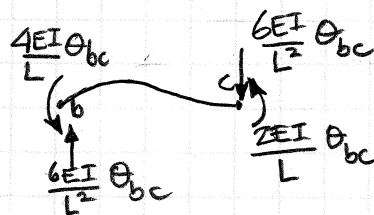 4EI/L θbc
6EI/L² θbc
b
c
2EI/L θbc
6EI/L² θbc